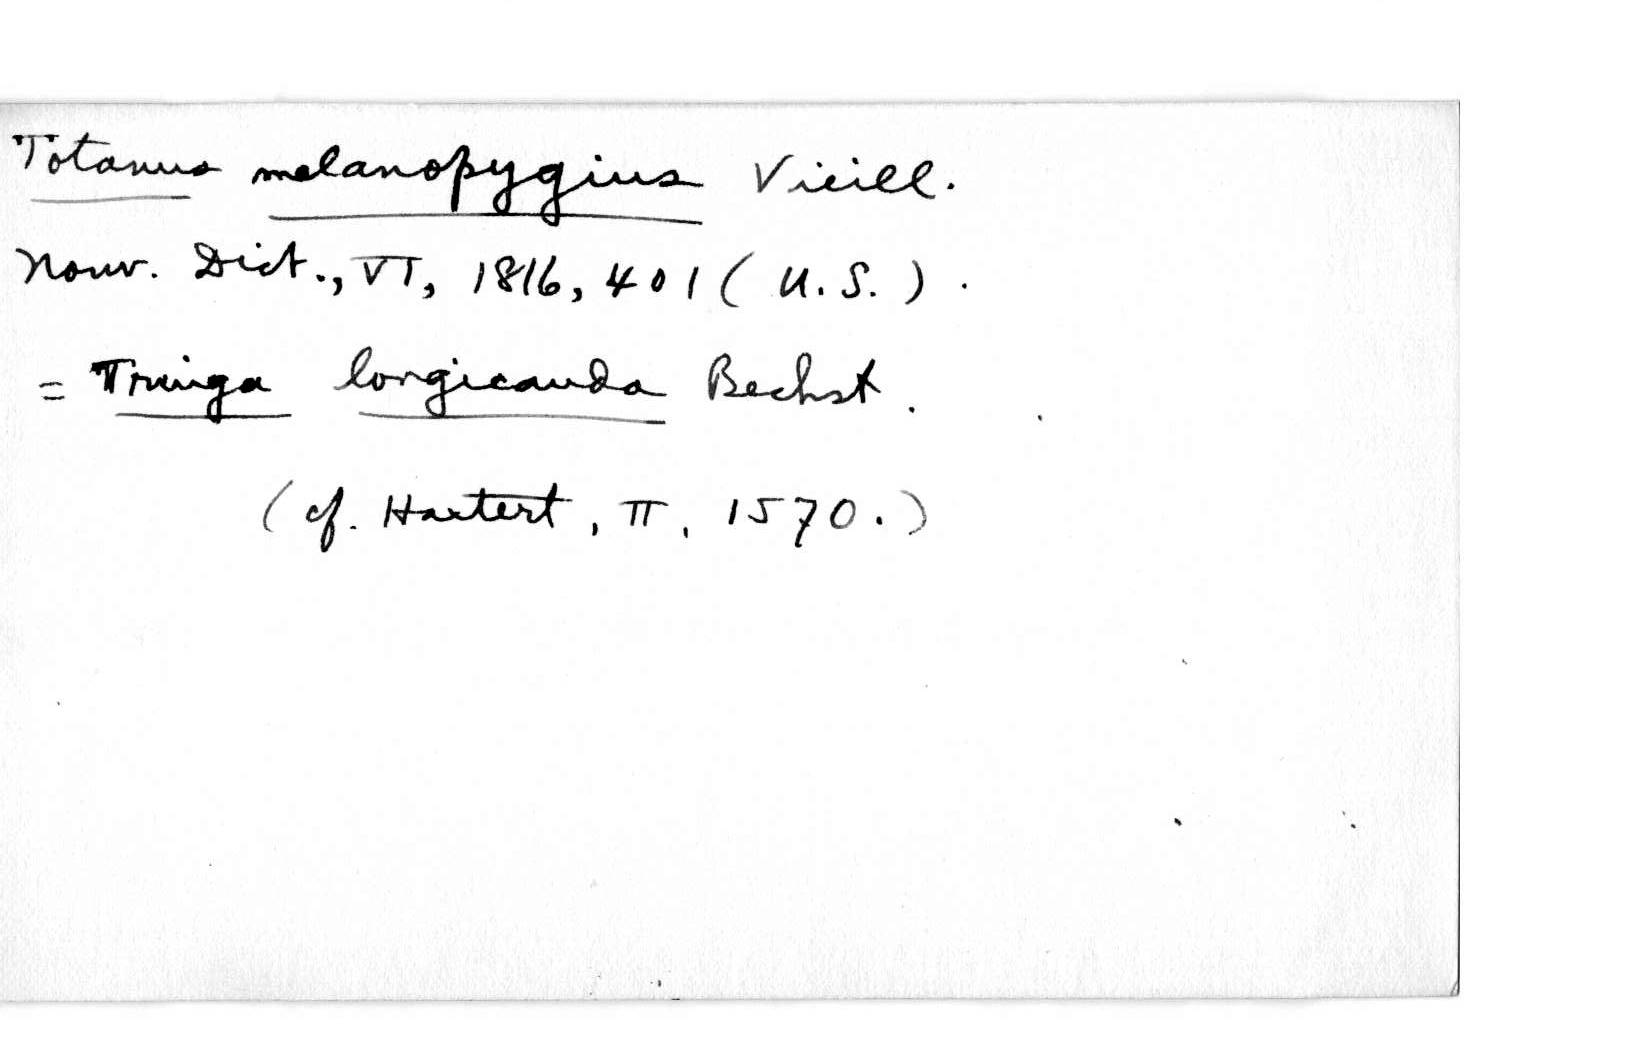 Totanus melanopygius Vieill.
Nouv. Dict., VI, 1816, 401 (U.S.).
= Tringa longicauda Bechst.
(cf. Hartert, II, 1570.)